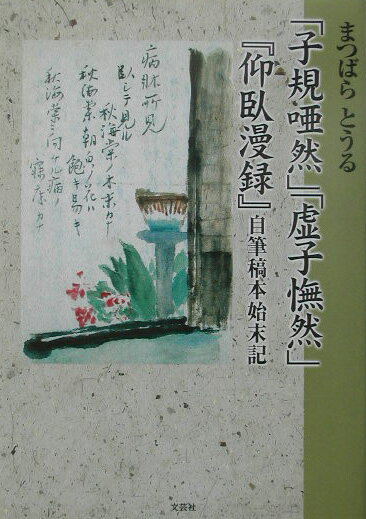 まつばら とうる
「子規唖然」「虚子憮然」
『仰臥漫録』自筆稿本始末記
病牀所見
臥シテ見ル
秋海棠ノ木末カナ
秋海棠朝皃ノ花ハ
飽キ易キ
秋海棠ニ向ケル病ノ
寝床カナ
文芸社